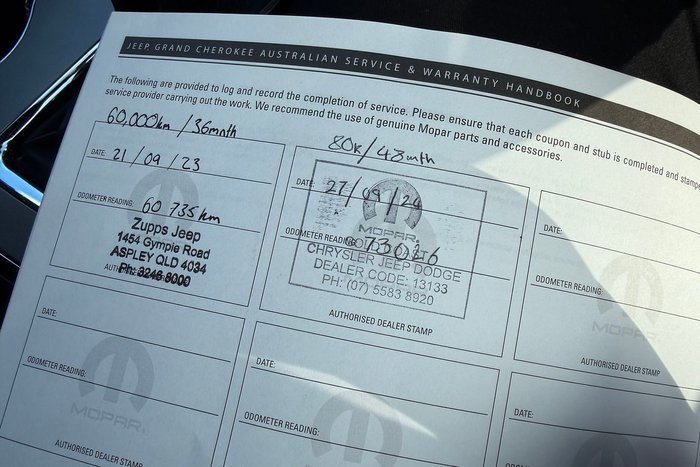 JEEP® GRAND CHEROKEE AUSTRALIAN SERVICE & WARRANTY HANDBOOK
The following are provided to log and record the completion of service. Please ensure that each coupon and stub is completed and stamped
service provider carrying out the work. We recommend the use of genuine Mopar parts and accessories.
60,000km / 36month
DATE: 21 / 09 / 23
ODOMETER READING: 60 735km
Zupps Jeep
1454 Gympie Road
ASPLEY QLD 4034
Ph: 3246 8000
80k / 48mth
DATE: 27 / 09 / 24
MOPAR
ODOMETER READING:
CHRYSLER JEEP DODGE
DEALER CODE: 13133
PH: (07) 5583 8920
AUTHORISED DEALER STAMP
DATE:
ODOMETER READING:
MOPAR
AUTHORISED DEALER STAMP
DATE:
ODOMETER READING:
MOPAR
AUTHORISED DEALER STAMP
DATE:
ODOMETER READING:
MOPAR
DATE:
ODOMETER READING: